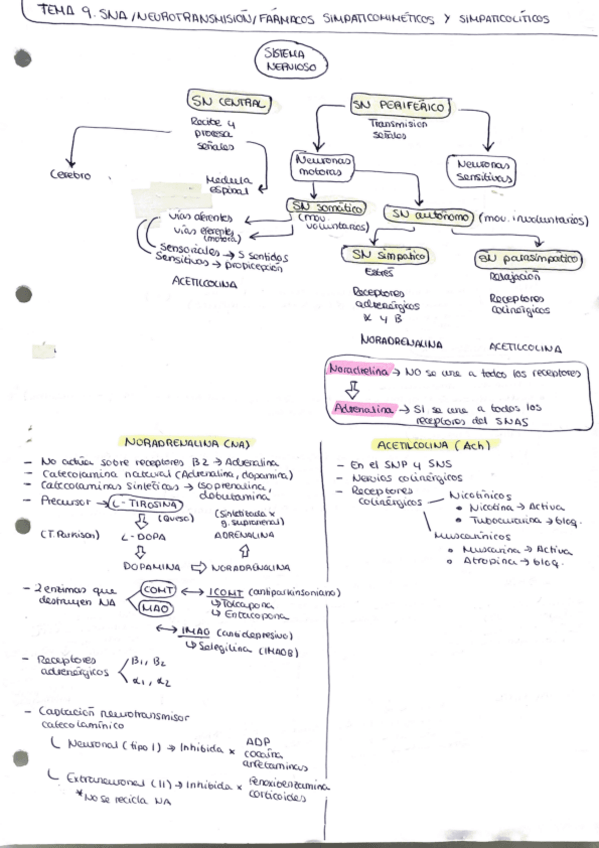 TEMA 9. SNA/NEUROTRANSMISIÓN/FÁRMACOS SIMPATICOMIMÉTICOS Y SIMPATICOLÍTICOS
SISTEMA
NERVIOSO
SN CENTRAL
Recibe y
procesa
señales
SN PERIFÉRICO
Transmisión
señales
Cerebro
Medula
espinal
Neuronas
motoras
Neuronas
Sensitivas
SN somático
(mov.
voluntarios)
SN autónomo (mov. involuntarios)
vías aferentes
vías eferentes
(motora)
Sensoriales → 5 sentidos
Sensitivas → propicepción
ACETILCOLINA
SN simpático
Estrés
Receptores
adrenérgicos
α y B
NORADRENALINA
SN parasimpático
Relajación
Receptores
colinérgicos
ACETILCOLINA
Noradrelina → NO se une a todos los receptores
Adrenalina → SI se une a todos los
receptores del SNAS
NORADRENALINA (NA)
- No actúa sobre receptores B2 → Adrenalina
- Catecolamina natural (Adrenalina, dopamina)
- Catecolaminas Sintéticas → Isoprenalina,
dobutamina
- Precursor → L-TIROSINA
(Queso)
(Sintetizada x
g. suprarrenal)
(T. Parkinson) L-DOPA ADRENALINA
DOPAMINA ⇨ NORADRENALINA
- 2 enzimas que
destruyen NA
COMT ↔ ICOMT (antiparkinsoniano)
↳ Tolcapona
↳ Entacapona
MAO
↔ IMAO (antidepresivo)
↳ Selegilina (IMAOB)
- Receptores
adrenérgicos
B1, B2
α1, α2
- Captación neurotransmisor
catecolamínico
Neuronal (tipo I) → Inhibida x
ADP
cocaína
anfetaminas
Extraneuronal (II) → Inhibida x
Fenoxibenzamina
corticoides
*No se recicla NA
ACETILCOLINA (Ach)
- En el SNP y SNS
- Nervios colinérgicos
- Receptores
colinérgicos
Nicotínicos
• Nicotina → Activa
• Tubocurarina → bloq.
Muscarínicos
• Muscarina → Activa
• Atropina → bloq.